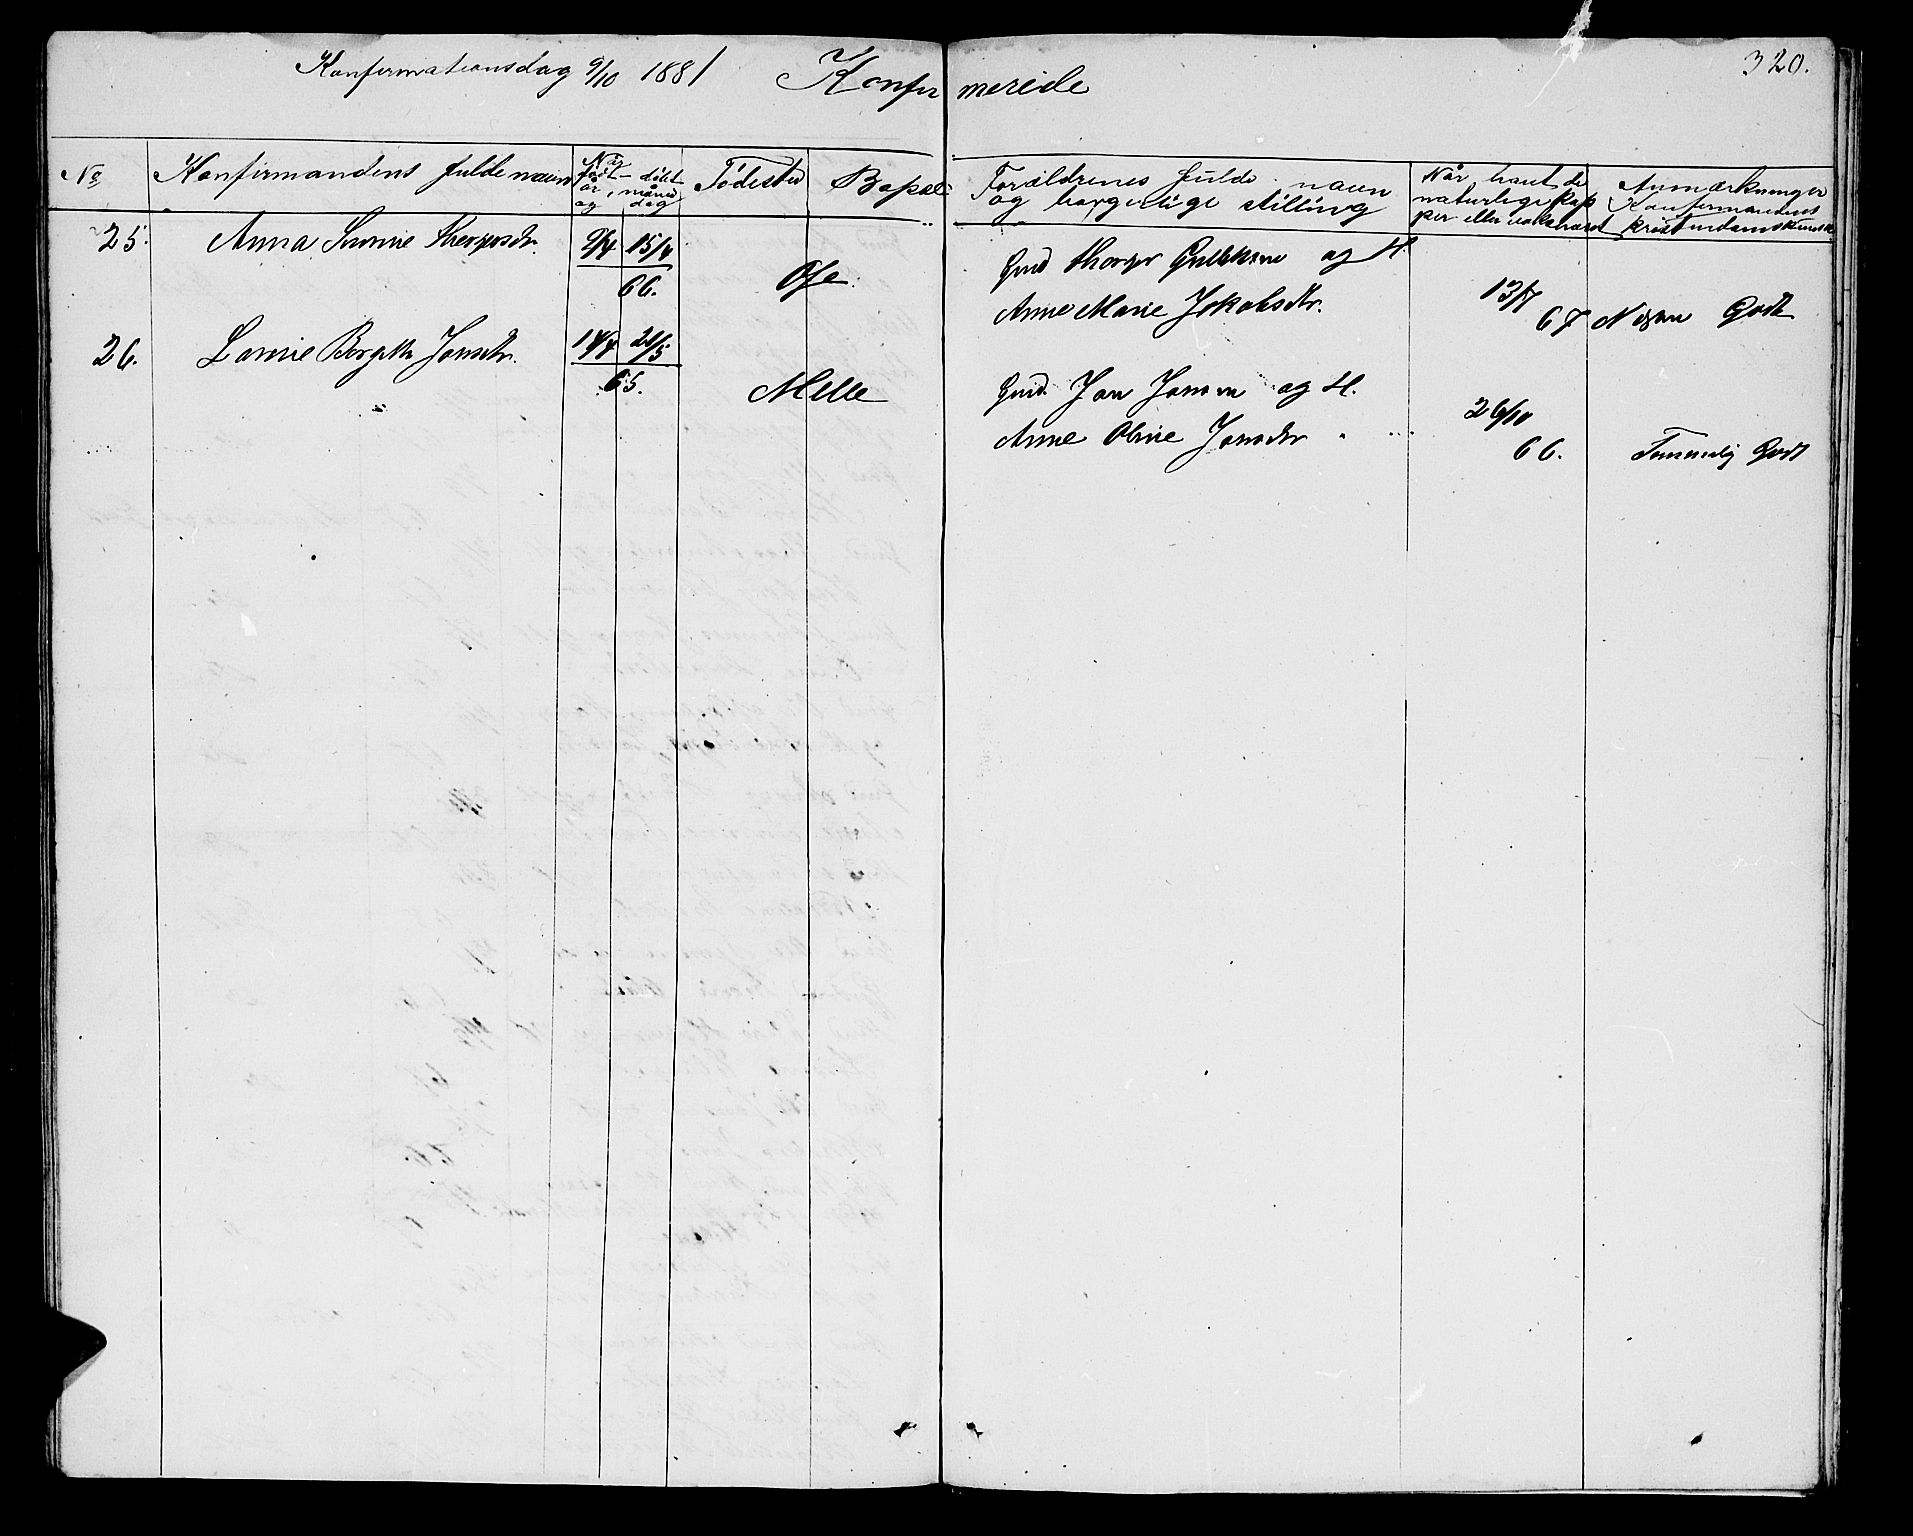 Konfirmationsdag 9/10 1881 Konfirmerede
320.
No
Konfirmandens fulde navn
Når født – døbt
år, måned
og dag
Fødested
Bopæl
Forældrenes fulde navn
og borgerlige stilling
Når havt de
naturlige kop
per eller vaksineret
Anmærkninger
Konfirmandens
kristendomskundsk
25. Anna
9/4 15/4
66.
Ose.
Gmd Thorger og H.
Anne Marie Jakobsdtr.
13/7
67
Nogen Godt
26. Lovise Jonsdtr.
14/4 21/5
65.
Melle
Gmd. Jon Jonsen og H.
Anne Oline Jonsdtr
26/10
66.
Temmelig Godt